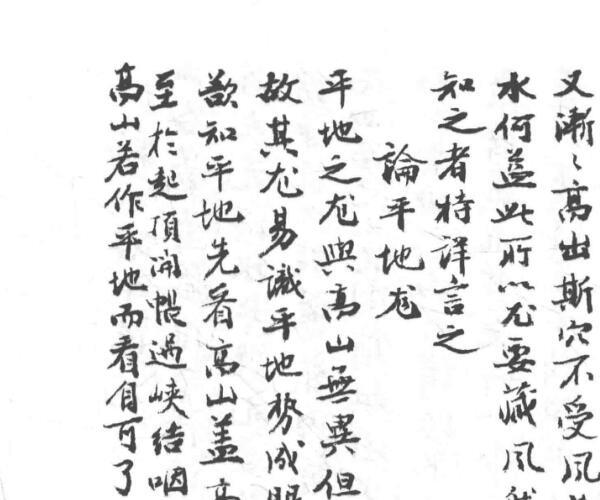 又漸〻高出斯穴不受風
水何益此所以尤要藏風
知之者特詳言之
論平地尨
平地之尨與高山無異但
故其尨易識平地勢成
欲知平地先看高山盖
至於起頂開帳過峽结咽
高山若作平地而看自可了